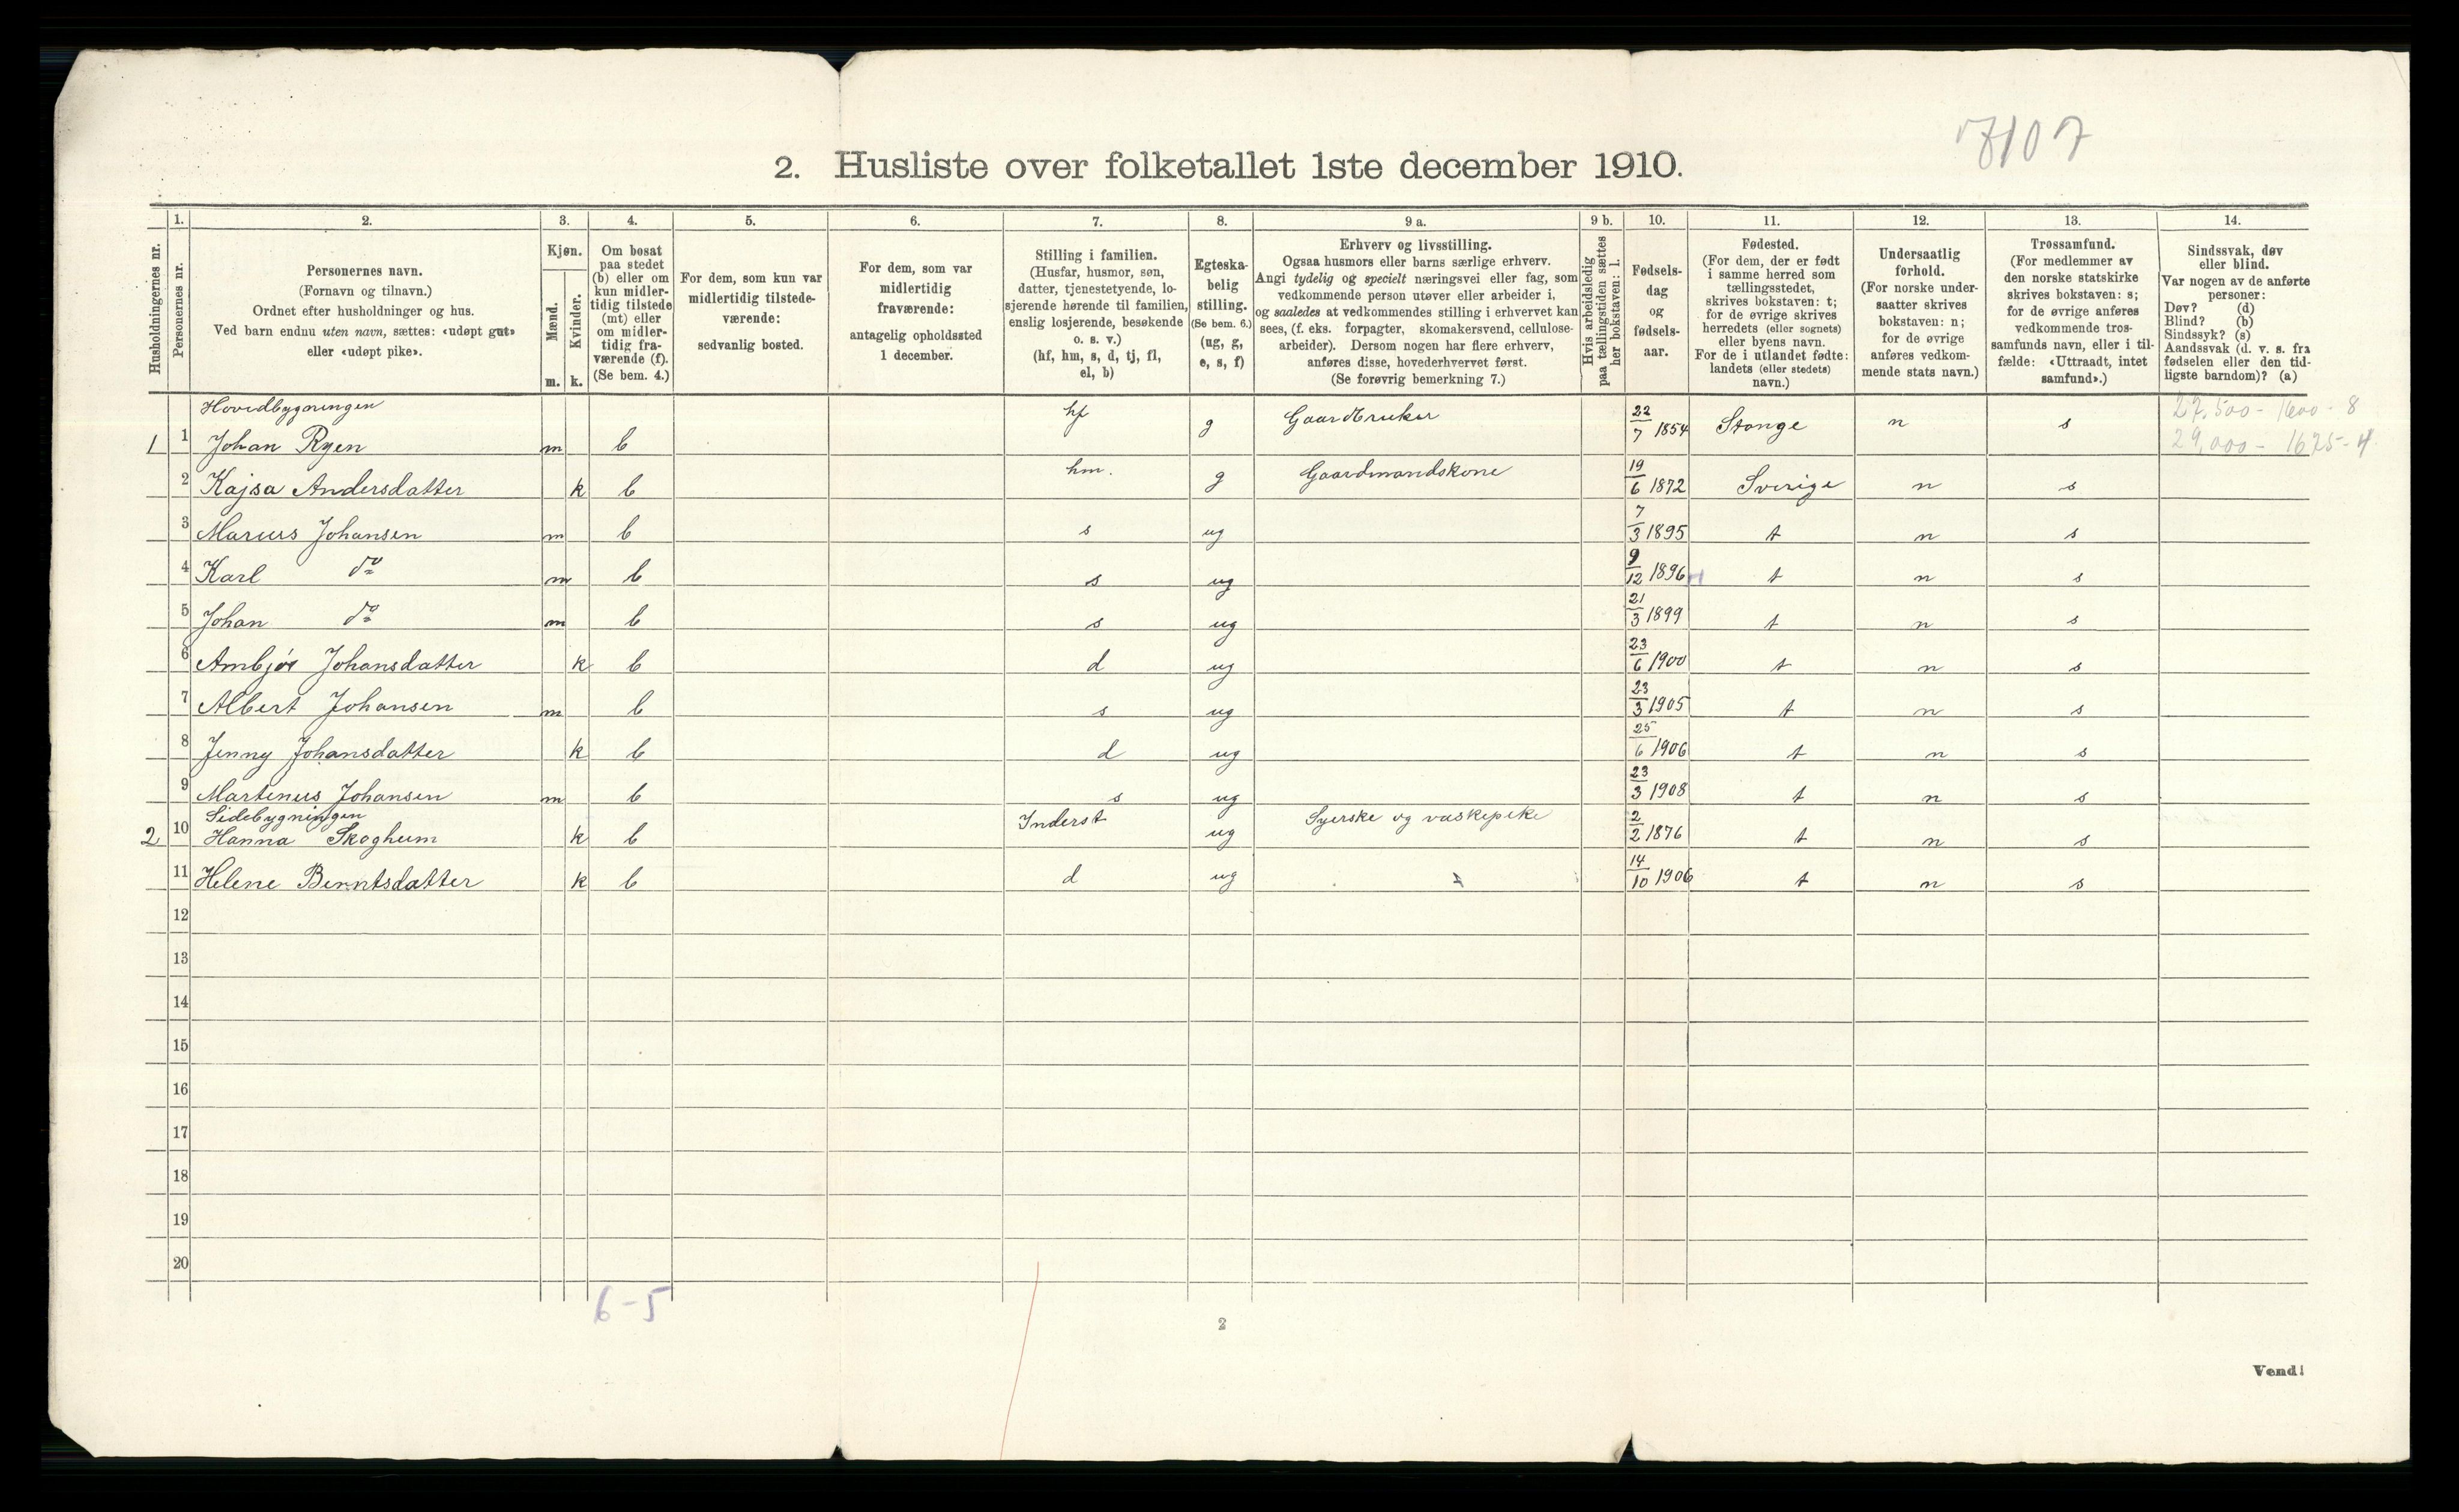 7107
2. Husliste over folketallet 1ste december 1910.
Husholdningernes nr.
1.
Personernes nr.
2.
Personernes navn.
(Fornavn og tilnavn.)
Ordnet efter husholdninger og hus.
Ved barn endnu uten navn, sættes: «udøpt gut»
eller «udøpt pike».
3.
Kjøn.
Mænd.
m.
Kvinder.
k.
4.
Om bosat
paa stedet
(b) eller om
kun midler-
tidig tilstede
(mt) eller
om midler-
tidig fra-
værende (f).
(Se bem. 4.)
5.
For dem, som kun var
midlertidig tilstede-
værende:
sedvanlig bosted.
6.
For dem, som var
midlertidig
fraværende:
antagelig opholdssted
1 december.
7.
Stilling i familien.
(Husfar, husmor, søn,
datter, tjenestetyende, lo-
sjerende hørende til familien,
enslig losjerende, besøkende
o. s. v.)
(hf, hm, s, d, tj, fl,
el, b)
8.
Egteska-
belig
stilling.
(Se bem. 6.)
(ug, g,
e, s, f)
9 a.
Erhverv og livsstilling.
Ogsaa husmors eller barns særlige erhverv.
Angi tydelig og specielt næringsvei eller fag, som
vedkommende person utøver eller arbeider i,
og saaledes at vedkommendes stilling i erhvervet kan
sees, (f. eks. forpagter, skomakersvend, cellulose-
arbeider). Dersom nogen har flere erhverv,
anføres disse, hovederhvervet først.
(Se forøvrig bemerkning 7.)
9 b.
Hvis arbeidsledig
paa tællingstiden sættes
her bokstaven: l.
10.
Fødsels-
dag
og
fødsels-
aar.
11.
Fødested.
(For dem, der er født
i samme herred som
tællingsstedet,
skrives bokstaven: t;
for de øvrige skrives
herredets (eller sognets)
eller byens navn.
For de i utlandet fødte:
landets (eller stedets)
navn.)
12.
Undersaatlig
forhold.
(For norske under-
saatter skrives
bokstaven: n;
for de øvrige
anføres vedkom-
mende stats navn.)
13.
Trossamfund.
(For medlemmer av
den norske statskirke
skrives bokstaven: s;
for de øvrige anføres
vedkommende tros-
samfunds navn, eller i til-
fælde: «Uttraadt, intet
samfund».)
14.
Sindssvak, døv
eller blind.
Var nogen av de anførte
personer:
Døv? (d)
Blind? (b)
Sindssyk? (s)
Aandssvak (d. v. s. fra
fødselen eller den tid-
ligste barndom)? (a)
Hovedbygningen
27,500 - 1600 - 8
29,000 - 1625 - 4
1 1 Johan Ryen m b hf g Gaardbruker 22/7 1854 Stange n s
2 Kajsa Andersdatter k b hm. g Gaardmandskone 19/6 1872 Sverige n s
3 Marius Johansen m b s ug 7/3 1895 t n s
4 Karl do m b s ug 9/12 1896 t n s
5 Johan do m b s ug 21/3 1899 t n s
6 Ambjør Johansdatter k b d ug 23/6 1900 t n s
7 Albert Johansen m b s ug 23/3 1905 t n s
8 Jenny Johansdatter k b d ug 25/6 1906 t n s
9 Martinius Johansen m b s ug 23/3 1908 t n s
Sidebygningen
2 10 Hanna Skoghum k b Inderst ug Syerske og vaskepike 2/2 1876 t n s
11 Helene Berntsdatter k b d ug 14/10 1906 t n s
12
13
14
15
16
17
18
19
20
6-5
2
Vend!